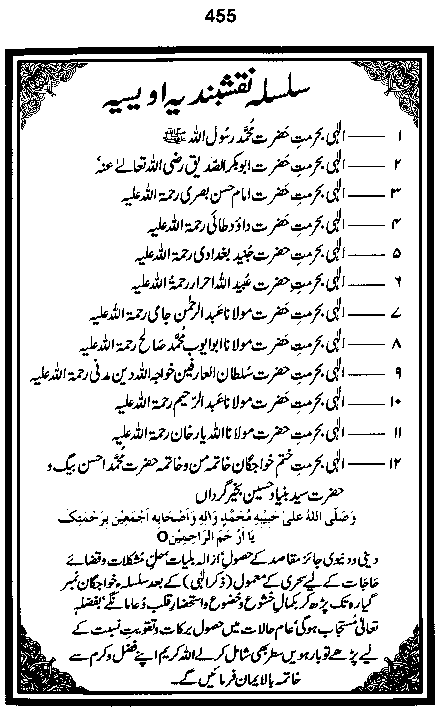 455
سلسلہ نقشبندیہ اویسیہ
۱ — الٰہی بحرمتِ حضرت محمدؐ رسول اللہ ﷺ
۲ — الٰہی بحرمتِ حضرت ابوبکر الصدیق رضی اللہ تعالےٰ عنہٗ
۳ — الٰہی بحرمتِ حضرت امام حسن بصری رحمۃ اللہ علیہ
۴ — الٰہی بحرمتِ حضرت داؤد طائی رحمۃ اللہ علیہ
۵ — الٰہی بحرمتِ حضرت جنید بغدادی رحمۃ اللہ علیہ
۶ — الٰہی بحرمتِ حضرت عبید اللہ احرار رحمۃ اللہ علیہ
۷ — الٰہی بحرمتِ حضرت مولانا عبد الرحمٰن جامی رحمۃ اللہ علیہ
۸ — الٰہی بحرمتِ حضرت مولانا ابوایوب محمد صالح رحمۃ اللہ علیہ
۹ — الٰہی بحرمتِ حضرت سلطان العارفین خواجہ اللہ دین مدنی رحمۃ اللہ علیہ
۱۰ — الٰہی بحرمتِ حضرت مولانا عبد الرحیم رحمۃ اللہ علیہ
۱۱ — الٰہی بحرمتِ حضرت مولانا اللہ یار خان رحمۃ اللہ علیہ
۱۲ — الٰہی بحرمتِ ختم خواجگان خاتمہ من و خاتمہ حضرت محمد احسن بیگ و
حضرت سید بنیاد حسین بخیر گرداں
وَصَلَّی اللہُ عَلیٰ حَبِیْبِہٖ مُحَمَّدٍ وَّاٰلِہٖ وَاَصْحَابِہٖ اَجْمَعِیْنَ بِرَحْمَتِکَ
یَا اَرْحَمَ الرَّاحِمِیْنَ ○
دینی و دنیوی جائز مقاصد کے حصول، ازالہ بلیات، حلِ مشکلات و قضائے
حاجات کے لیے سحری کے معمول (ذکر الٰہی) کے بعد سلسلہ خواجگان نمبر
گیارہ تک پڑھ کر بکمالِ خشوع و خضوع و استحضارِ قلب دُعا مانگے، بفضلہٖ
تعالیٰ مُستجاب ہوگی، عام حالات میں حصول برکات و تقویتِ نسبت کے
لیے پڑھے تو بارہویں سطر بھی شامل کرلے اللہ کریم اپنے فضل و کرم سے
خاتمہ بالایمان فرمائیں گے۔